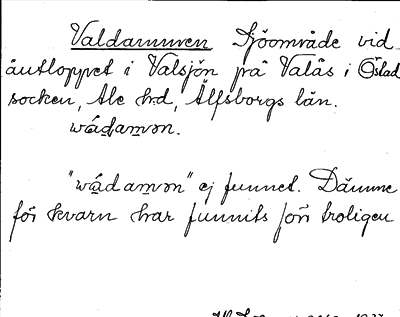 Valdammen Sjöområde vid
åutloppet i Valsjön på Valås i Östad
socken, Ale hd, Älfsborgs län.
wádamən.
"wádamən" ej funnet. Dämme
för kvarn har funnits förr troligen